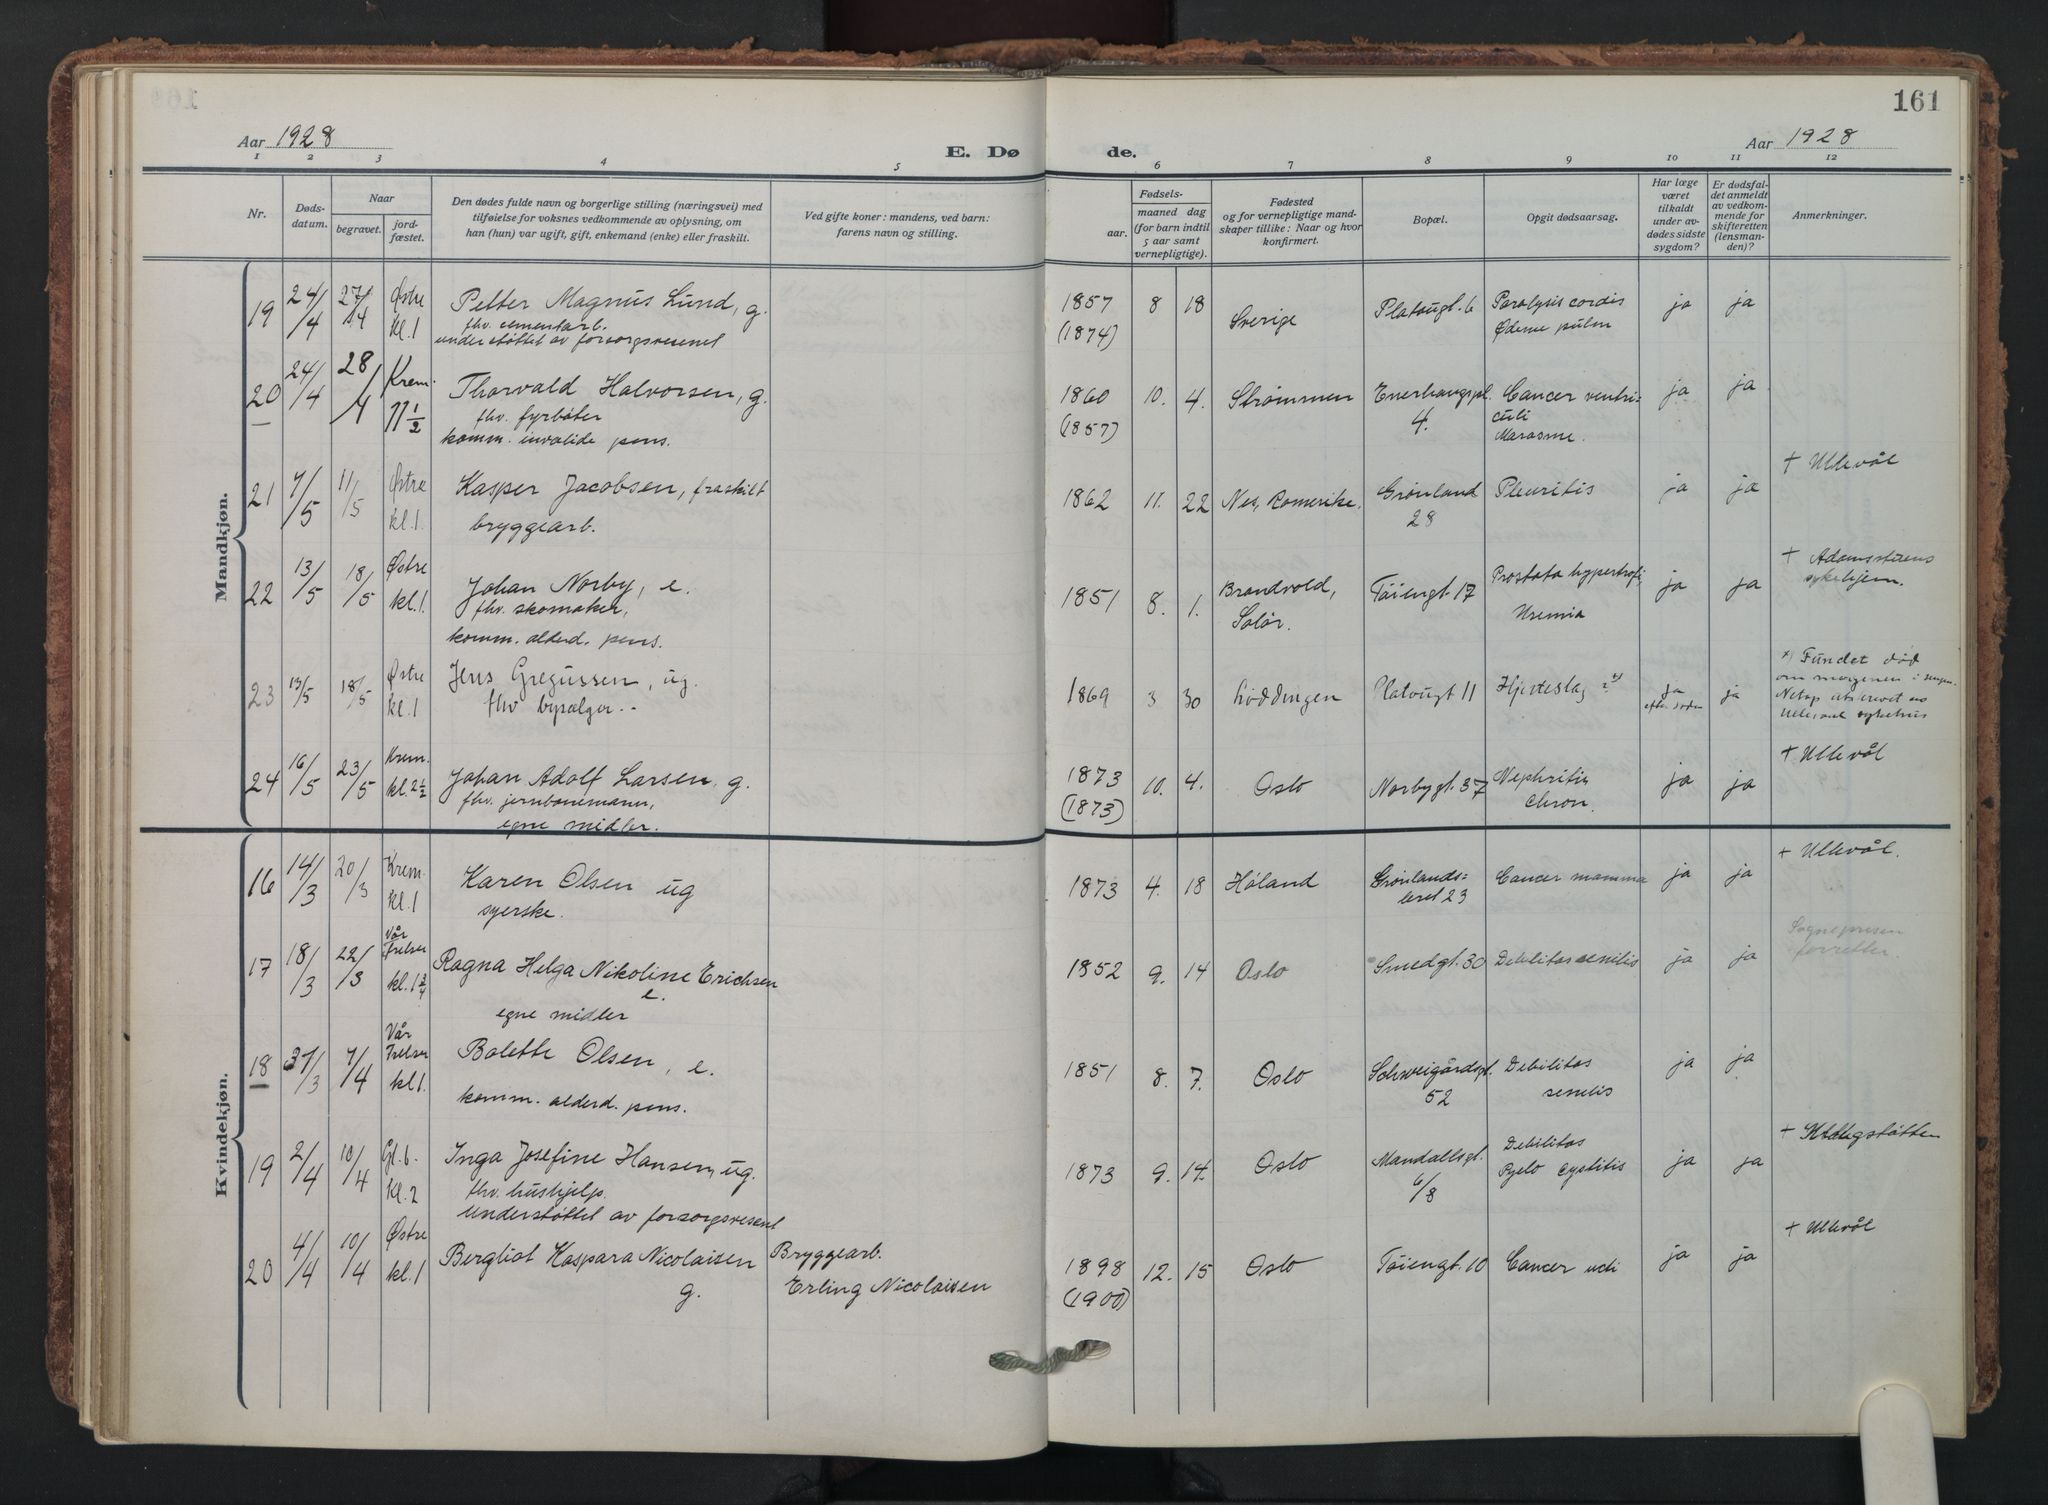 161
Aar 1928
E. Døde.
Aar 1928
1 2 3 4 5 6 7 8 9 10 11 12
Nr.
Døds-
datum.
Naar
begravet.
jord-
fæstet.
Den dødes fulde navn og borgerlige stilling (næringsvei) med
tilføielse for voksnes vedkommende av oplysning, om
han (hun) var ugift, gift, enkemand (enke) eller fraskilt.
Ved gifte koner: mandens, ved barn:
farens navn og stilling.
Fødsels-
aar.
maaned dag
(for barn indtil
5 aar samt
vernepligtige).
Fødested
og for vernepligtige mand-
skaper tillike: Naar og hvor
konfirmert.
Bopæl.
Opgit dødsaarsag.
Har læge
været
tilkaldt
under av-
dødes sidste
sygdom?
Er dødsfal-
det anmeldt
av vedkom-
mende for
skifteretten
(lensman-
den)?
Anmerkninger.
Mandkjøn.
19 24/4 27/4 Østre kl. 1 Petter Magnus Lund, g. 1857 8 18 Sverige Platougt. 6 Paralysis cordis ja ja
fhv. cementarb. (1874) Ødeme pulm
understøttet av forsorgsvesenet
20 24/4 28/4 Krem. 11 1/2 Thorvald Halvorsen, g. 1860 10. 4. Strømmen Enerhaugpl. 4. Cancer ventri- ja ja
fhv. fyrbøter (1857) culi
komm. invalide pens. Marasme.
21 7/5 11/5 Østre kl. 1. Kasper Jacobsen, fraskilt 1862 11. 22 Nes, Romerike. Grønland 28 Pleuritis ja ja + Ullevål
bryggearb.
22 13/5 18/5 Østre kl. 1. Johan Norby, e. 1851 8. 1. Brandvold, Solør. Tøiengt. 17 Prostata hypertrofi, ja ja + Adamstuens
fhv. skomaker, Uremia sykehjem.
komm. alderd. pens.
23 13/5 18/5 Østre kl. 1 Jens Gregussen, ug. 1869 3 30 Løddingen Platougt 11 Hjerteslag ja efter døden ja x) Fundet død
fhv bysælger om morgenen i sengen.
Ullevaal sykehus
24 16/5 23/5 Krem. kl. 2 1/2 Johan Adolf Larsen, g. 1873 10. 4. Oslo Norbygt. 37 Nephritis ja ja + Ullevål
fhv. jernbanemann, (1873) chron.
egne midler.
Kvindekjøn.
16 14/3 20/3 Krem. kl. 1 Karen Olsen ug 1873 4. 18 Høland Grønlands= leret 23 Cancer mamma ja ja + Ullevål.
syerske.
17 18/3 22/3 Vår Frelser kl. 1 3/4 Ragna Helga Nikoline Erichsen 1852 9. 14 Oslo Smedgt. 30 Debilitas senilis ja ja Sognepresten
e. forretter
egne midler
18 31/3 7/4 Vår Frelser kl. 1. Bolette Olsen, e. 1851 8. 7. Oslo Schweigårdsgt. 52 Debilitas ja ja
komm. alderd. pens. senilis
19 2/4 10/4 Gl. b. kl. 2 Inga Josefine Hansen, ug. 1873 9. 14. Oslo Mandallsgt. 6/8 Debilitas ja ja
fhv. hushjelp. Pyelo cystitis
understøttet av forsorgsvesenet
20 4/4 10/4 Østre kl. 1 Bergliot Kaspara Nicolaisen Bryggearb. 1898 12. 15 Oslo Tøiengt. 10 Cancer uteri ja ja + Ullevål
g. Erling Nicolaisen (1900)